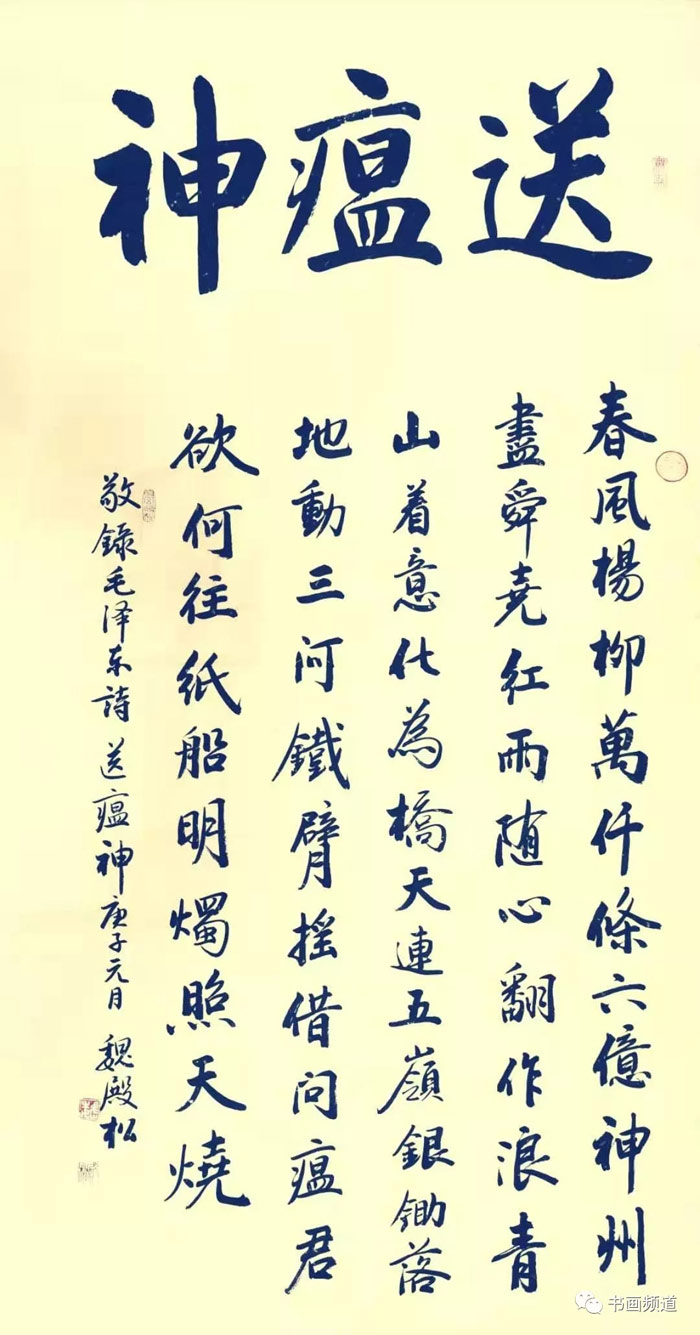 送瘟神
春風楊柳萬仟條六億神州
盡舜堯紅雨随心翻作浪青
山着意化為橋天連五嶺銀鋤落
地動三河鐵臂摇借问瘟君
欲何往紙船明燭照天燒
敬錄毛泽东詩送瘟神庚子元月魏殿松
书画频道